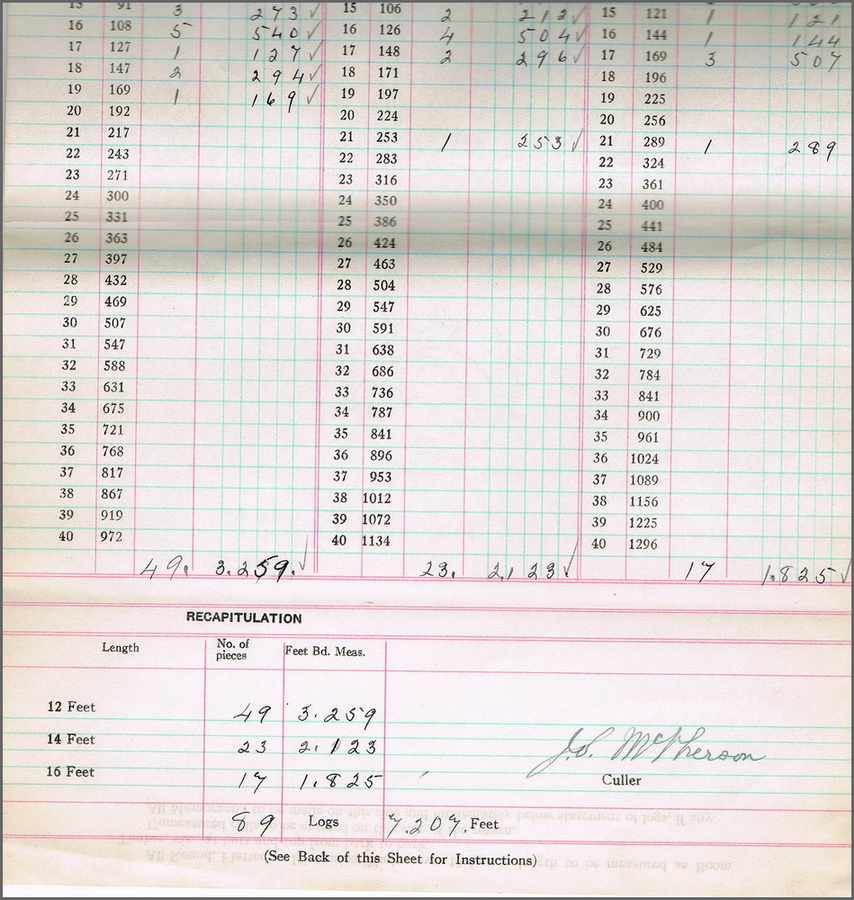 15 91 3 273 ✓ 15 106 2 212 ✓ 15 121 1 121
16 108 5 540 ✓ 16 126 4 504 ✓ 16 144 1 144
17 127 1 127 ✓ 17 148 2 296 ✓ 17 169 3 507
18 147 2 294 ✓ 18 171 18 196
19 169 1 169 ✓ 19 197 19 225
20 192 20 224 20 256
21 217 21 253 1 253 ✓ 21 289 1 289
22 243 22 283 22 324
23 271 23 316 23 361
24 300 24 350 24 400
25 331 25 386 25 441
26 363 26 424 26 484
27 397 27 463 27 529
28 432 28 504 28 576
29 469 29 547 29 625
30 507 30 591 30 676
31 547 31 638 31 729
32 588 32 686 32 784
33 631 33 736 33 841
34 675 34 787 34 900
35 721 35 841 35 961
36 768 36 896 36 1024
37 817 37 953 37 1089
38 867 38 1012 38 1156
39 919 39 1072 39 1225
40 972 40 1134 40 1296
49. 3.259. ✓ 23. 2.123 ✓ 17 1.825 ✓
RECAPITULATION
Length No. of pieces Feet Bd. Meas.
12 Feet 49 3.259
14 Feet 23 2.123
J.S. McPherson
16 Feet 17 1.825 Culler
89 Logs 7.207. Feet
(See Back of this Sheet for Instructions)